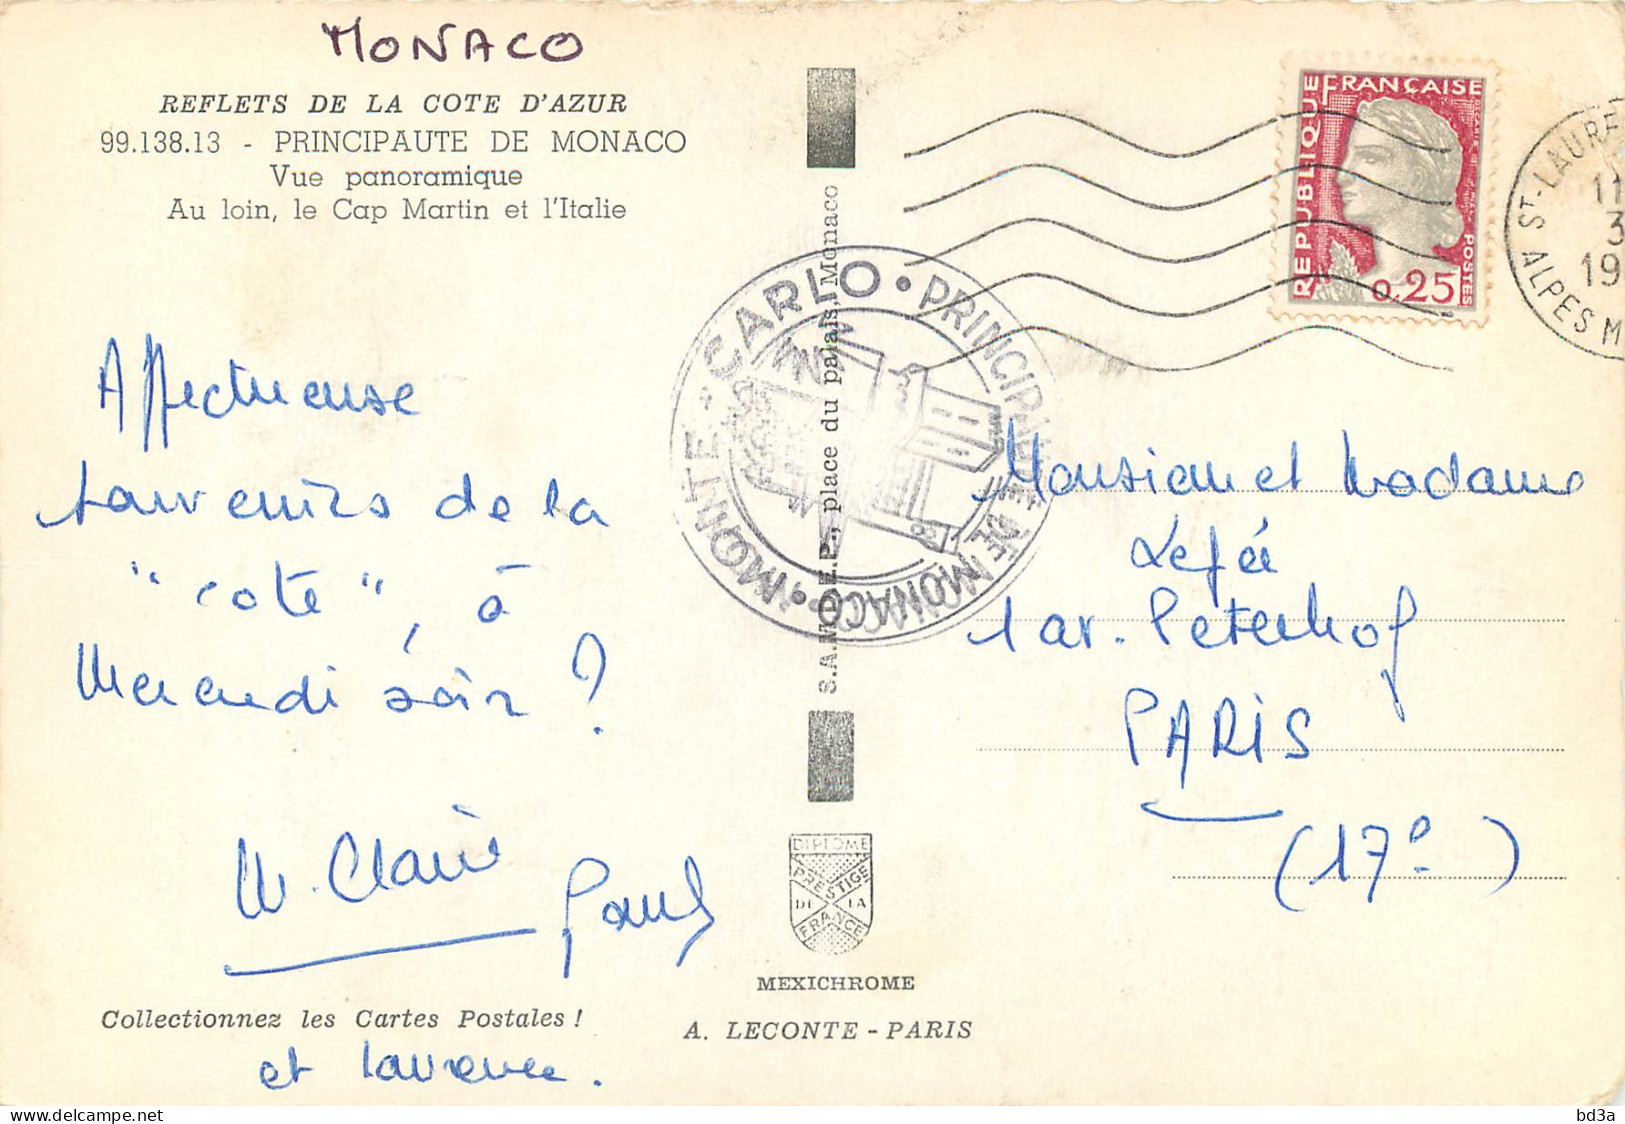 MONACO
REFLETS DE LA COTE D'AZUR
99.138.13 - PRINCIPAUTE DE MONACO
Vue panoramique
Au loin, le Cap Martin et l'Italie
Affectueuse
souvenirs de la
"cote", à
Mercredi soir ?
M. Claire
Paul
Collectionnez les Cartes Postales !
et Laurence.
place du palais, Monaco
MONTE-CARLO • PRINCIPAUTE DE MONACO •
DIPLOME
PRESTIGE
DE LA
FRANCE
MEXICHROME
A. LECONTE - PARIS
REPUBLIQUE FRANÇAISE
POSTES
0,25
ST-LAURE
11
3
19
ALPES M
Monsieur et Madame
1 av. Peterhof
PARIS
(17e)
bd3a